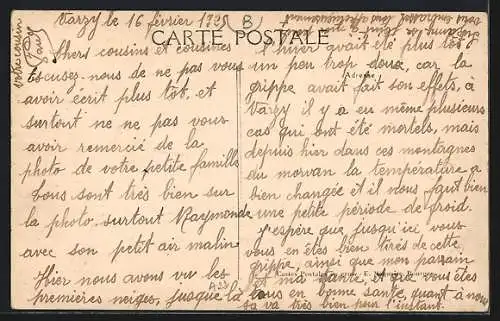 Varzy le 16 février 1925
B
CARTE POSTALE
Chers cousins et cousines
Excusez-nous de ne pas vous
avoir écrit plus tôt, et
surtout ne ne pas vous
avoir remercié de la
photo de votre petite famille
tous sont très bien sur
la photo surtout Raymonde
avec son petit air malin.
Hier nous avons vu les
premières neiges, jusque là
l'hiver avait été plus tôt
un peu trop doux, car la
Adresse
grippe avait fait son effets, à
Varzy il y a eu même plusieurs
cas qui ont été mortels, mais
depuis hier dans ces montagnes
du morvan la température a
bien changée et il nous faut bien
une petite période de froid.
J'espère que jusqu'ici, vous
vous en êtes bien tirés de cette
grippe, ainsi que mon parrain
et ma et que vous êtes
tous en bonne santé, quant à nous
sa va très bien pour l'instant.
vous embrassant tous affectueusement
votre cousin